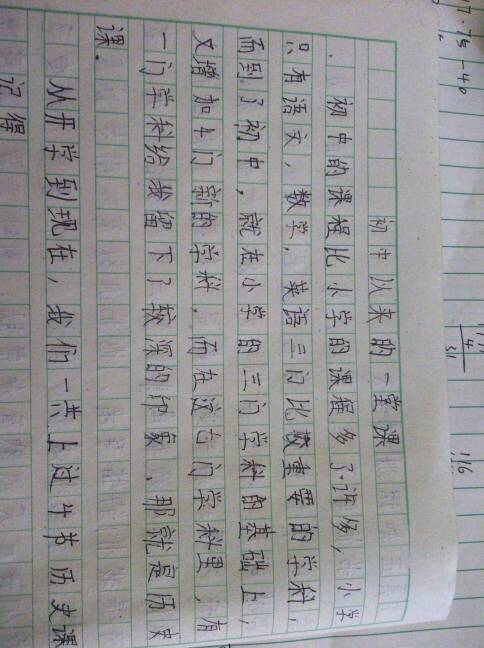 初中以来的一堂课
初中的课程比小学的课程多了许多，小学
只有语文、数学、英语三门比较重要的学科，
而到了初中，就在小学的三门学科的基础上，
又增加4门新的学科。而在这七门学科里，有
一门学科给我留下了较深的印象，那就是历史
课。
从开学到现在，我们一共上过4节历史课
记得
17.75-40
116